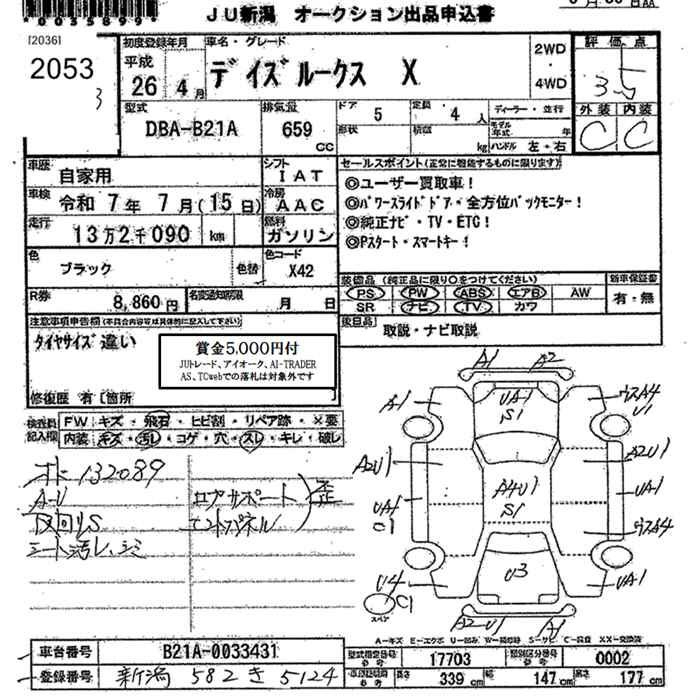 JU新潟 オークション出品申込書
[2036]
2053
3
初度登録年月
平成
26 4 月
車名・グレード
デイズルークス X
2WD
・
4WD
評価点
3.5
外装 内装
C C
型式
DBA-B21A
排気量
659 CC
ドア 5
形状
定員 4 人
積載 kg
ディーラー・並行
モデル年式 年
ハンドル 左・右
車歴 自家用
シフト IAT
車検 令和 7 年 7 月 (15 日)
冷房 AAC
走行 13万2千090 km
燃料 ガソリン
色 ブラック 色替
色コード X42
R券 8,860円
名変通知期限 月 日
セールスポイント(正常に機能するものに限ります)
◎ユーザー買取車!
◎パワースライドドア・全方位バックモニター!
◎純正ナビ・TV・ETC!
◎Pスタート・スマートキー!
装備品 (純正品に限り○をつけてください)
PS PW ABS エアB AW
SR ナビ TV カワ
新車保証書
有・無
後日品 取説・ナビ取説
注意事項申告欄(不具合内容等は具体的に記入して下さい)
タイヤサイズ違い
賞金5,000円付
JUトレード、アイオーク、AI-TRADER
AS、TCwebでの落札は対象外です
修復歴 有 [箇所
検査員記入欄
FW キズ・飛石・ヒビ割・リペア跡・X要
内装 キズ・汚レ・コゲ・穴・スレ・キレ・破レ
オド 132089
A-U
下回りS
シート汚レ、シミ
ロアサポート
エンドパネル
歪
A1 A2
A1 UA1 S1 ウスA4 U1
A2U1 A2U1
UA1 C1 A4U1 S1 UA1
ウスA4
U4 C1 U3 UA1
スペア
A2-U1 A1
A-キズ E-エクボ U-凹み W-補修跡 S-サビ C-腐食 XX-交換済
車台番号 B21A-0033431
登録番号 新潟 582 き 5124
型式指定番号 参考 17703
類別区分番号 参考 0002
車検証情報 参考 長さ 339 cm 幅 147 cm 高さ 177 cm